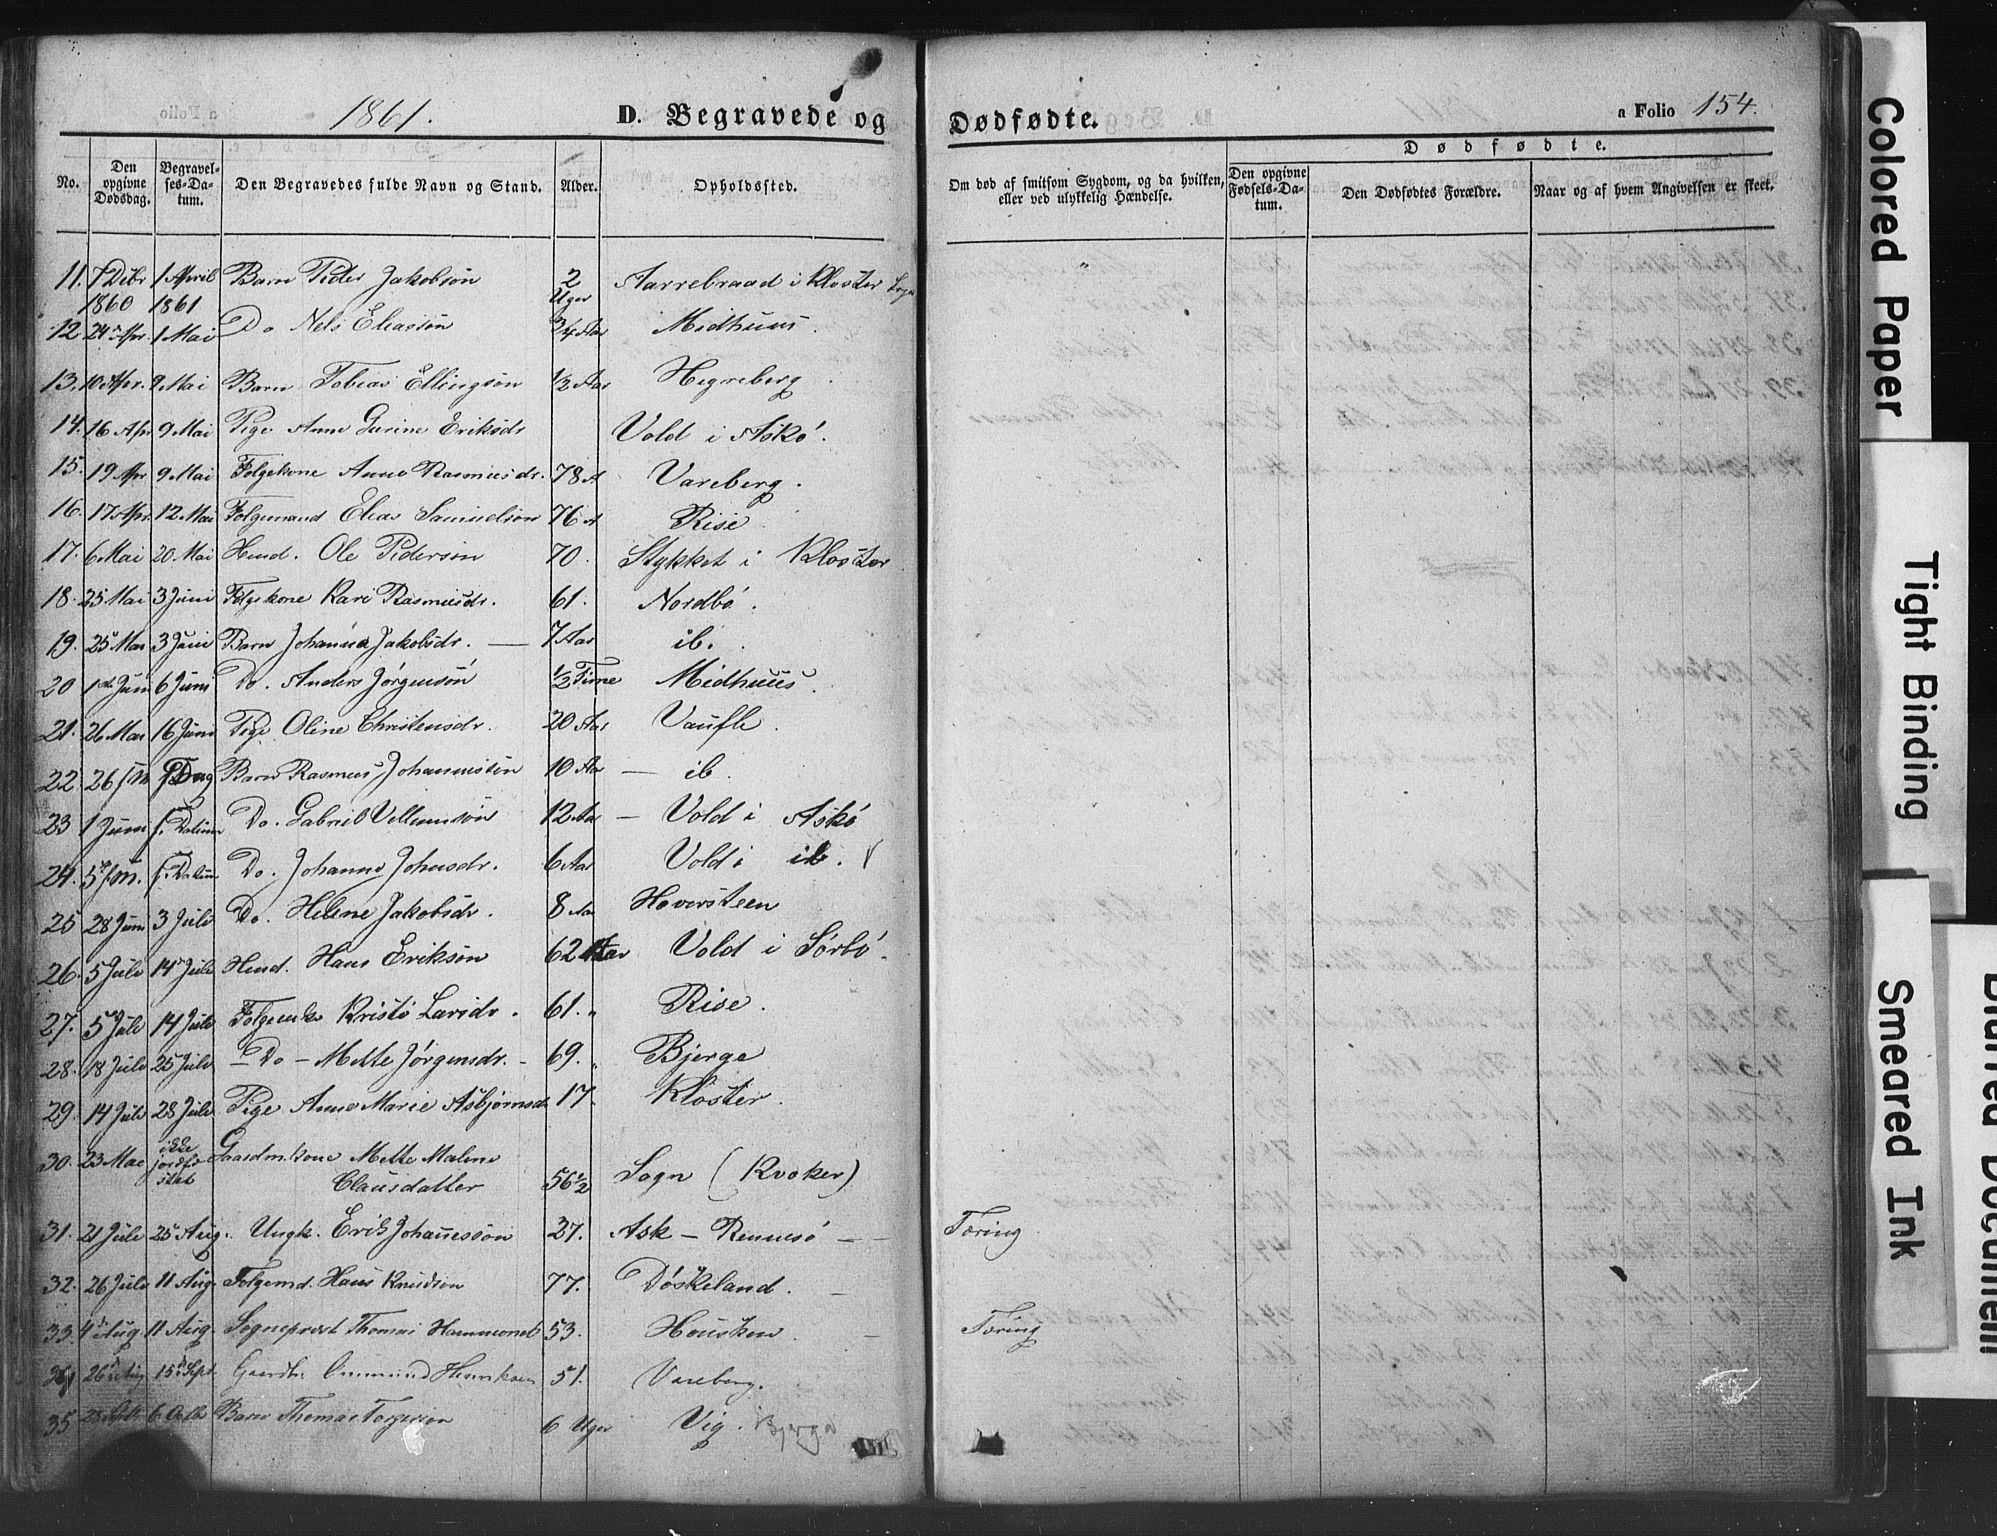 1861.
D. Begravede og
Dødfødte.
a Folio 154.
No.
Den opgivne Dødsdag.
Begravelses-Datum.
Den Begravedes fulde Navn og Stand.
Alder.
Opholdssted.
Om død af smitsom Sygdom, og da hvilken, eller ved ulykkelig Hændelse.
Dødfødte.
Den opgivne Fødsels-Datum.
Den Dødfødtes Forældre.
Naar og af hvem Angivelsen er skeet.
11. 7 Debr 1860 1 April 1861 Barn Peder Jakobsøn 2 Uger Aarrebraad i Kloster Sogn
12 24 Apr. 1 Mai Do Nels Eliassøn 3/4 Aar Midhuus.
13. 10 Apr. 9 Mai Barn Tobias Ellingsøn 1/2 Aar Hegreberg
14. 16 Apr 9 Mai Pige Anne Gurine Eriksdr Vold i Askø.
15. 19 Apr 9 Mai Folgekone Anne Rasmusdr. 78 A Vareberg.
16. 17 Apr. 12 Mai Folgemand Elias Samuelsøn 76 A Rise
17. 6 Mai 20 Mai Huusmd. Ole Pedersøn 70. Stykket i Kloster
18. 25 Mai 3 Juni Folgekone Kari Rasmusdr. 61. Nordbø.
19. 25 Mai 3 Juni Barn Johanna Jakobsdr. 7 Aar ib.
20 1ste Juni 6 Juni Do. Anders Jørgensøn 1/2 Time Midhuus.
21. 26 Mai 16 Juni Pige Oline Christensdr. 20 Aar Vaufle.
22. 26 f. M. f. Dag Barn Rasmus Johannessøn 10 Aar — ib.
23 1 Juni f. Datum Do. Gabriel Villumsøn 12 Aar — Vold i Askø
24. 5 f. M. f. Datum Do. Johanne Johnsdr. 6 Aar Vold i ib.
25 28 Juni 3 Juli Do. Helene Jakobsdr. 8 Aar Haversteen
26. 5 Juli 14 Juli Huusmd. Hans Eriksøn 62 Aar Vold i Sørbø.
27. 5 Juli 14 Juli Folgeenke Kristi Larsdr. 61. " Rise.
28. 18 Juli 25 Juli — Do — Mette Jørgensdr. - 69. " Bjerge
29. 14 Juli 28 Juli Pige Anne Marie Asbjørnsd. 17. Kloster.
30. 23 Mai ikke jordfæstet Gaardmkone Mette Malene Clausdatter 56 1/2 Sogn (Kvæker)
31. 21 Juli 25 Aug. Ungk. Erik Johannessøn 27. Ask — Rennesø — - Tæring
32. 26 Juli 11 Aug. Folgemd. Hans Knudsøn 77. Døskeland. -
33. 4 Aug. 11 Aug. Sogneprest Thomas Hammond 53. Housken. - Tæring
34 26 Aug 15 Sept. Gaardbr. Ommund Henriksen 51. Vareberg.
35. 28 Septr. 6 Octbr Barn Thomas Torgersøn 6 Uger Vig. Bjerga
Colored Paper
Tight Binding
Smeared Ink
Blurred Document